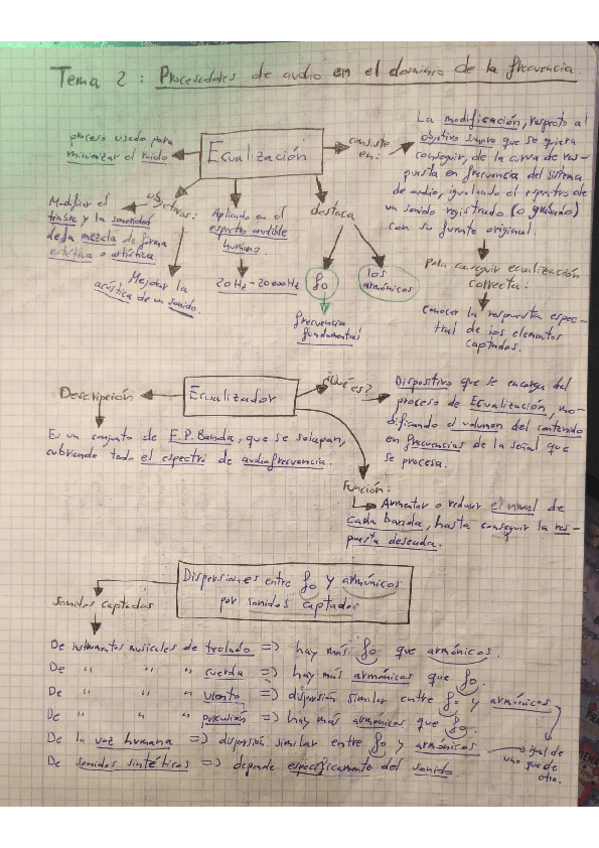 Tema 2: Procesadores de audio en el dominio de la frecuencia.
proceso usado para
minimizar el ruido
Ecualización
consiste
en:
La modificación, respecto al
objetivo sonoro que se quiera
conseguir, de la curva de res-
puesta en frecuencia del sistema
de audio, igualando el espectro de
un sonido registrado (o grabado)
con su fuente original.
objetivos:
Modificar el
timbre y la sonoridad
de la mezcla de forma
estética o artística.
Mejorar la
acústica de un sonido.
Aplicando en el
espectro audible
humano.
20Hz - 20000Hz
destaca
fo
los
armónicos
frecuencia
fundamental
Para conseguir ecualización
correcta:
Conocer la respuesta espec-
tral de los elementos
captados.
Descripción
Ecualizador
¿Qué es?
Dispositivo que se encarga del
proceso de Ecualización, mo-
dificando el volumen del contenido
en frecuencias de la señal que
se procesa.
Es un conjunto de F.P.Banda, que se solapan,
cubriendo todo el espectro de audiofrecuencia.
Función:
Aumentar o reducir el nivel de
cada banda, hasta conseguir la res-
puesta deseada.
Dispersiones entre fo y armónicos
por sonidos captados
Sonidos captados
De instrumentos musicales de teclado => hay más fo que armónicos.
De " " " cuerda => hay más armónicos que fo.
De " " " viento => dispersión similar entre fo y armónicos
De " " " percusión => hay más armónicos que fo.
De la voz humana => dispersión similar entre fo y armónicos
igual de
uno que de
otro.
De sonidos sintéticos => depende específicamente del sonido.